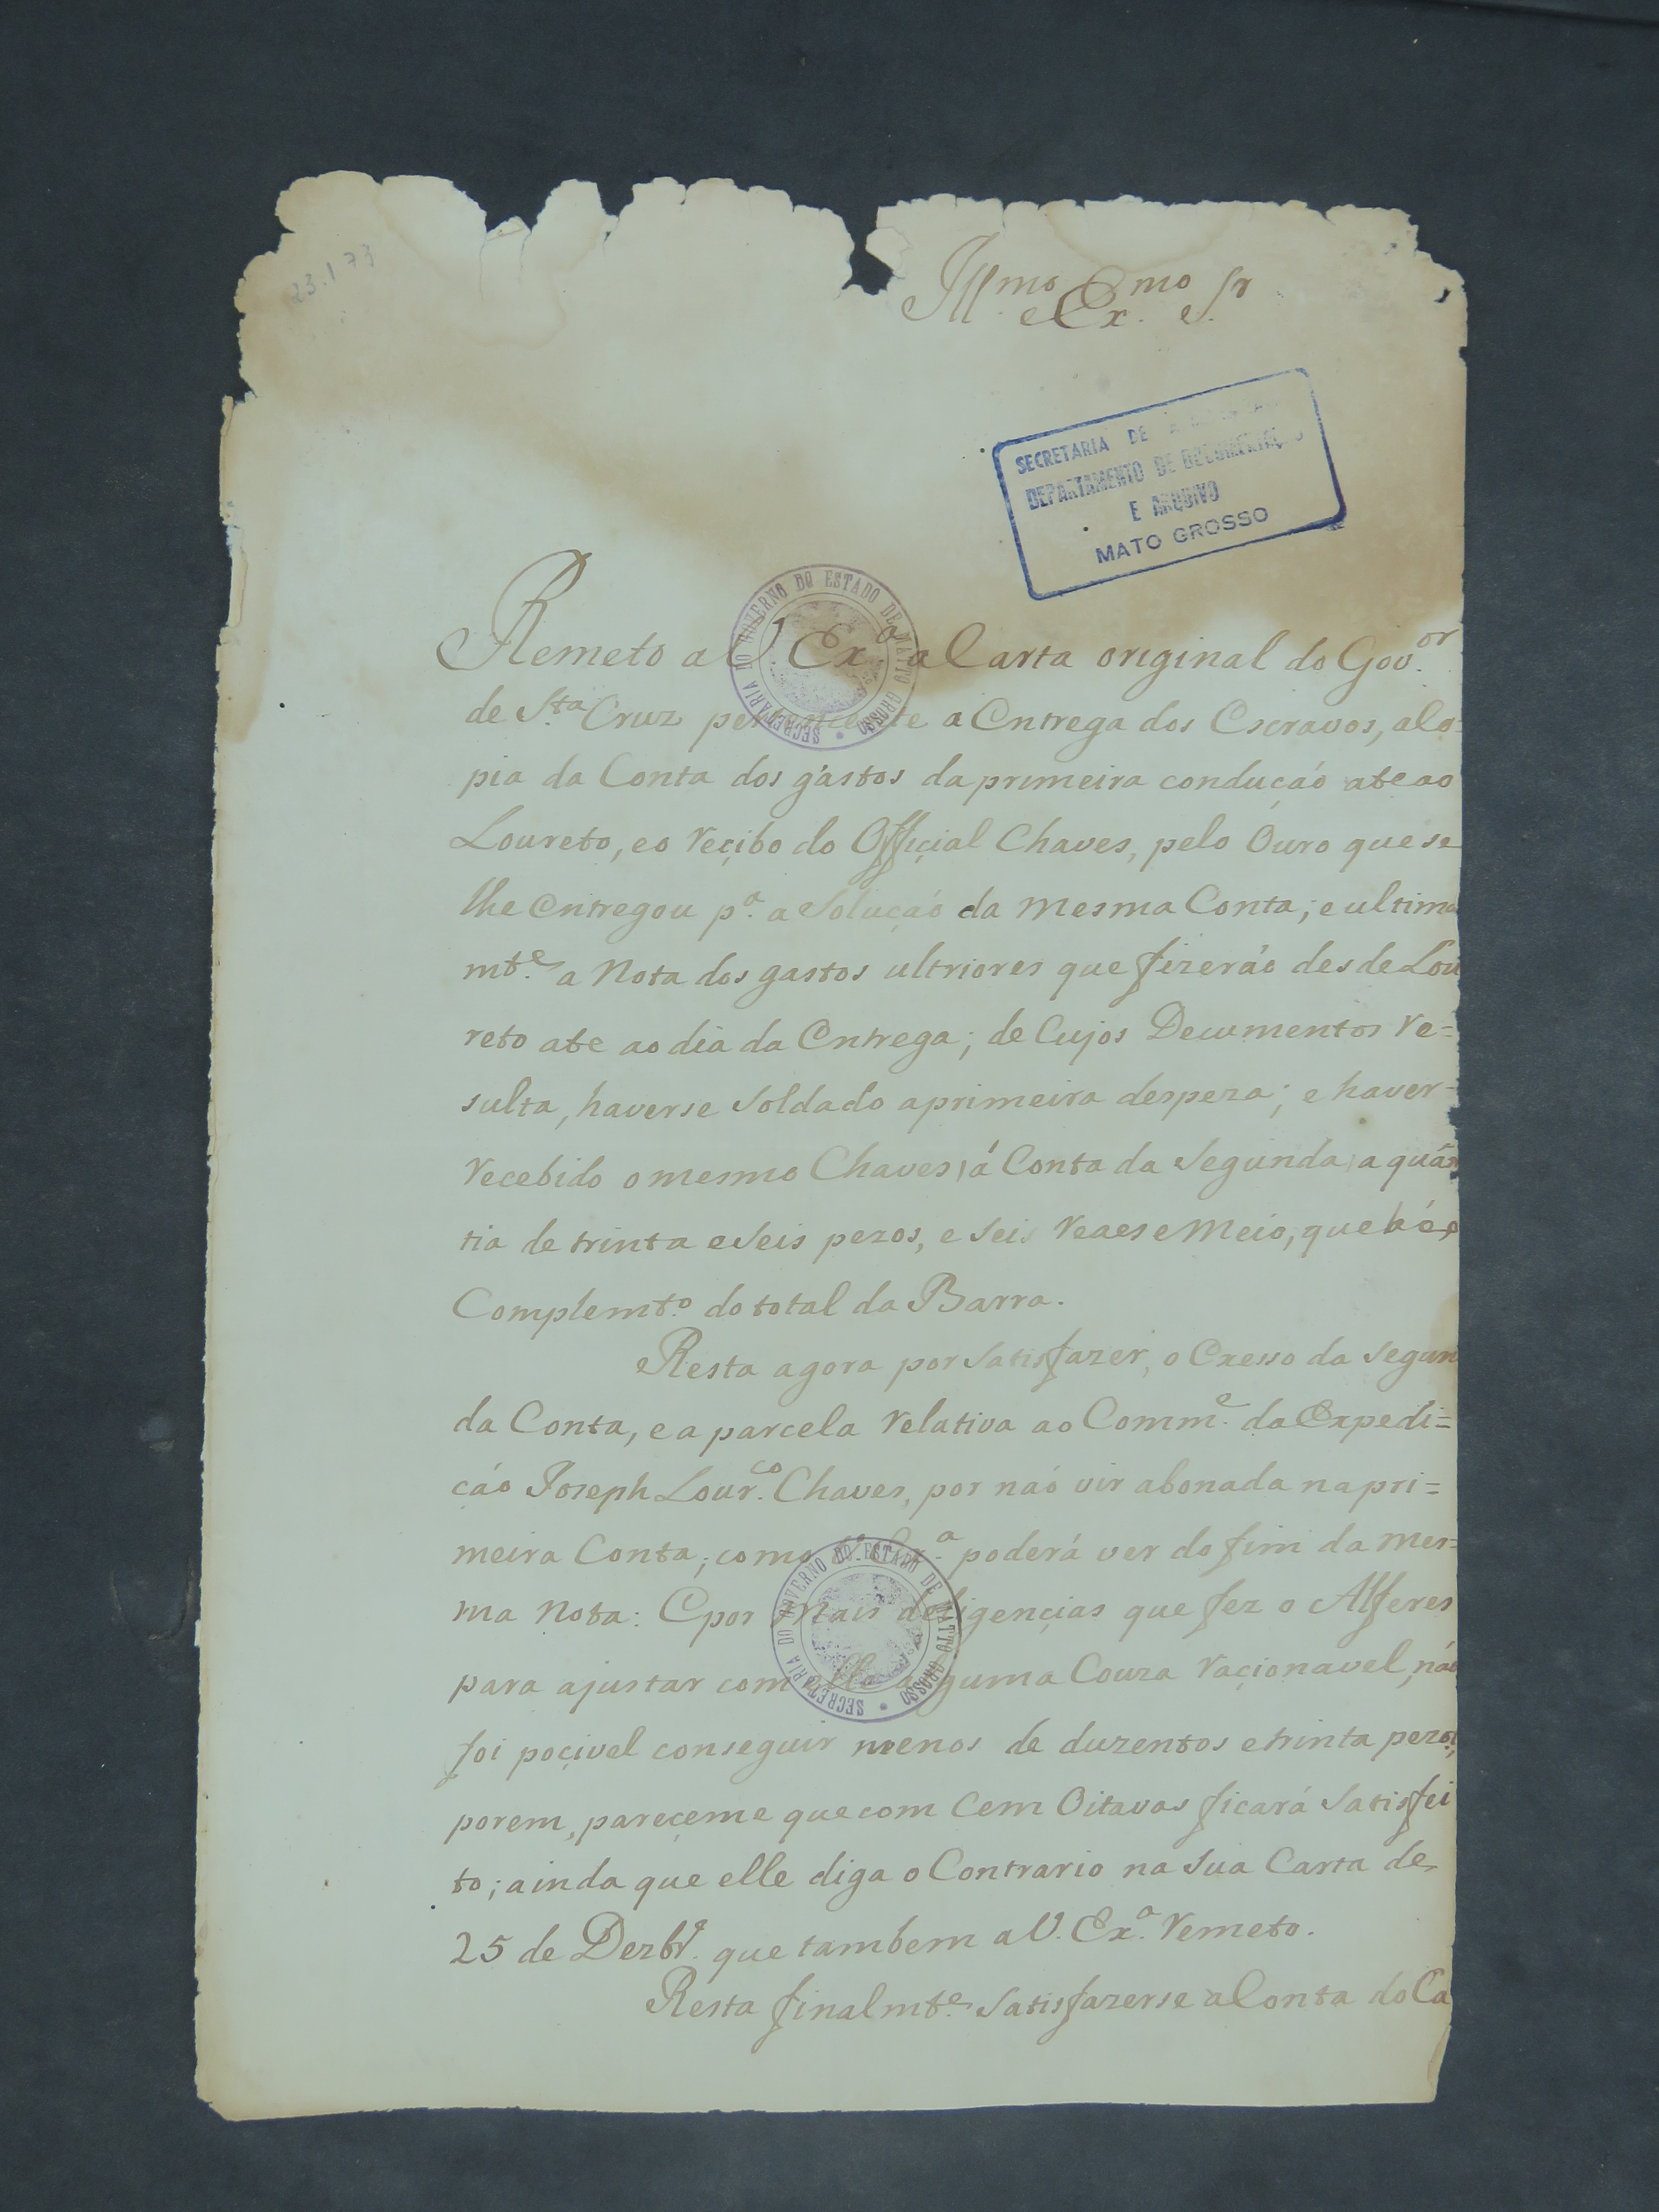 23.1.73
Ill.mo e Ex.mo Sr.
SECRETARIA DE
DEPARTAMENTO DE DOCUMENTAÇÃO
E ARQUIVO
MATO GROSSO
Remeto a V Ex.a a Carta original do Gov.or
SECRETARIA DO GOVERNO DO ESTADO DE MATTO GROSSO
de S.ta Cruz pertencente a Entrega dos Escravos, a Co-
pia da Conta dos gastos da primeira condução ate ao
Loureto, e o reçibo do Offiçial Chaves, pelo Ouro que se
lhe entregou p.a a Solução da mesma Conta; e ultima
mte. a Nota dos gastos ultriores que fizerão des de Lou
reto ate ao dia da Entrega; de Cujos Documentos re=
sulta, haverse Soldado a primeira despeza; e haver-
recebido o mesmo Chaves, á Conta da Segunda, a quan
tia de trinta e Seis pezos, e Seis reaes e Meio, que hé o
Complemt.o do total da Barra.
Resta agora por Satisfazer, o Exesso da Segun
da Conta, e a parcela relativa ao Comm.e da Expedi=
cáo Joseph Lour.co Chaves, por não vir abonada na pri=
meira Conta; como V. Ex.a poderá ver do fim da mes=
ma Nota: E por mais deligençias que fez o Alferes
SECRETARIA DO GOVERNO DO ESTADO DE MATTO GROSSO
para ajustar com elle alguma Couza raçionavel, não
foi poçivel conseguir menos de duzentos e trinta pezos;
porem, pareçeme que com Cem Oitavas ficará Satisfei
to; ainda que elle diga o Contrario na Sua Carta de
25 de Dezbr.e que tambem a V. Ex.a remeto.
Resta finalmte. Satisfazerse a Conta do Ca